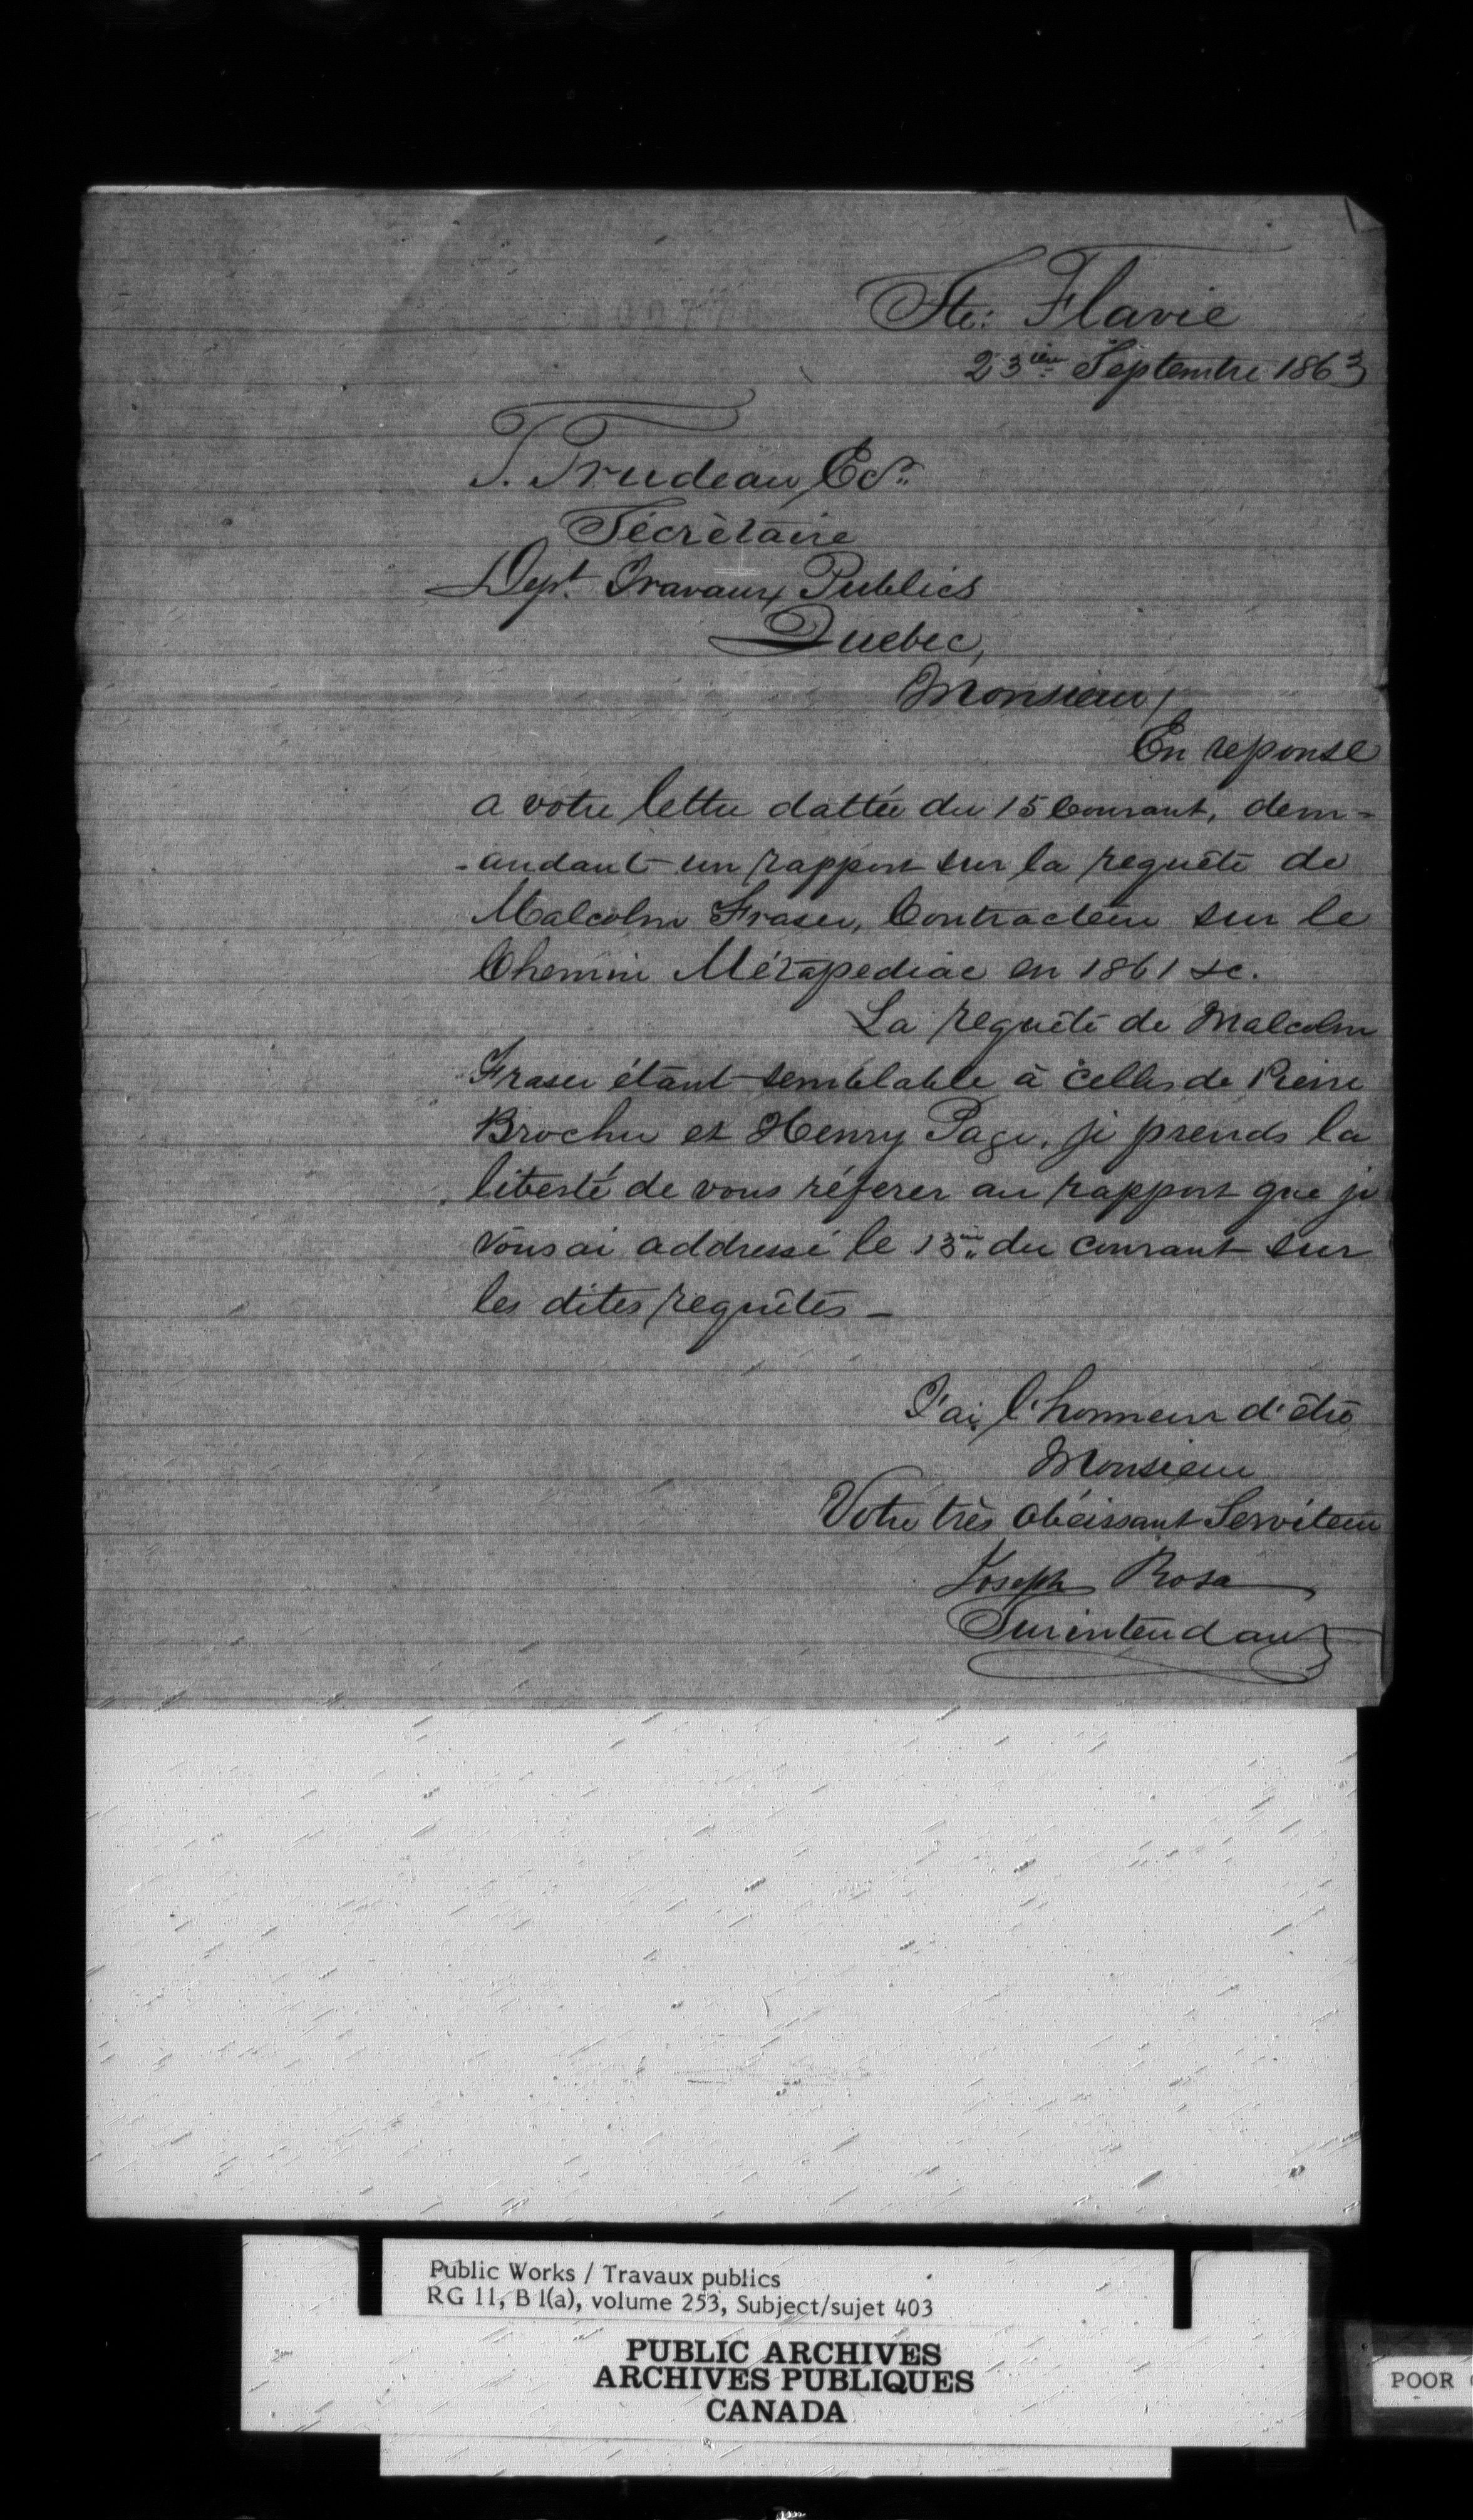 Ste: Flavie
23ième Septembre 1863
T. Trudeau, Ecr.
Sécrètaire
Dept. Travaux Publics
Quebec,
Monsieur,
En reponse
a votre lettre dattée du 15 Courant, dem=
-andant un rapport sur la requête de
Malcolm Fraser, Contracteur sur le
Chemin Métapediac en 1861 &c.
La requête de Malcolm
Fraser étant semblable à celles de Pierre
Brochu et Henry Page, je prends la
liberté de vous réferer au rapport que je
vous ai addressé le 13me du courant sur
les dites requêtes _
J'ai l'honneur d'être
Monsieur
Votre très obéissant Serviteur
Joseph Rosa
Surintendant
Public Works / Travaux publics
RG 11, B 1(a), volume 253, Subject/sujet 403
PUBLIC ARCHIVES
ARCHIVES PUBLIQUES
CANADA
POOR